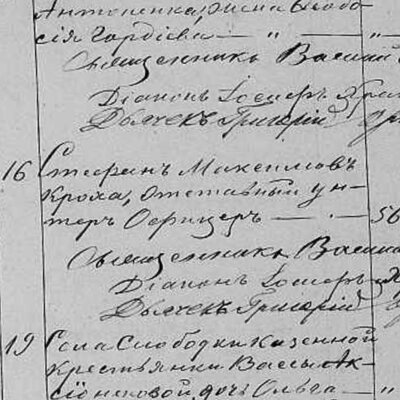 Антоненка, жена Ѳеодо-
сія Гордіева — " — "
Священникъ Василій
Діаконъ Іосифъ
Дьячекъ Григорій
16 Стефанъ Максимовъ
Кроха, отставный ун-
теръ Офицеръ — 56
Священникъ Васили
Діаконъ Іосифъ
Дьячекъ Григорій
19 Села Слободки казенной
крестьянки Вассы Ак-
сіонтовой, дочь Ольга — "